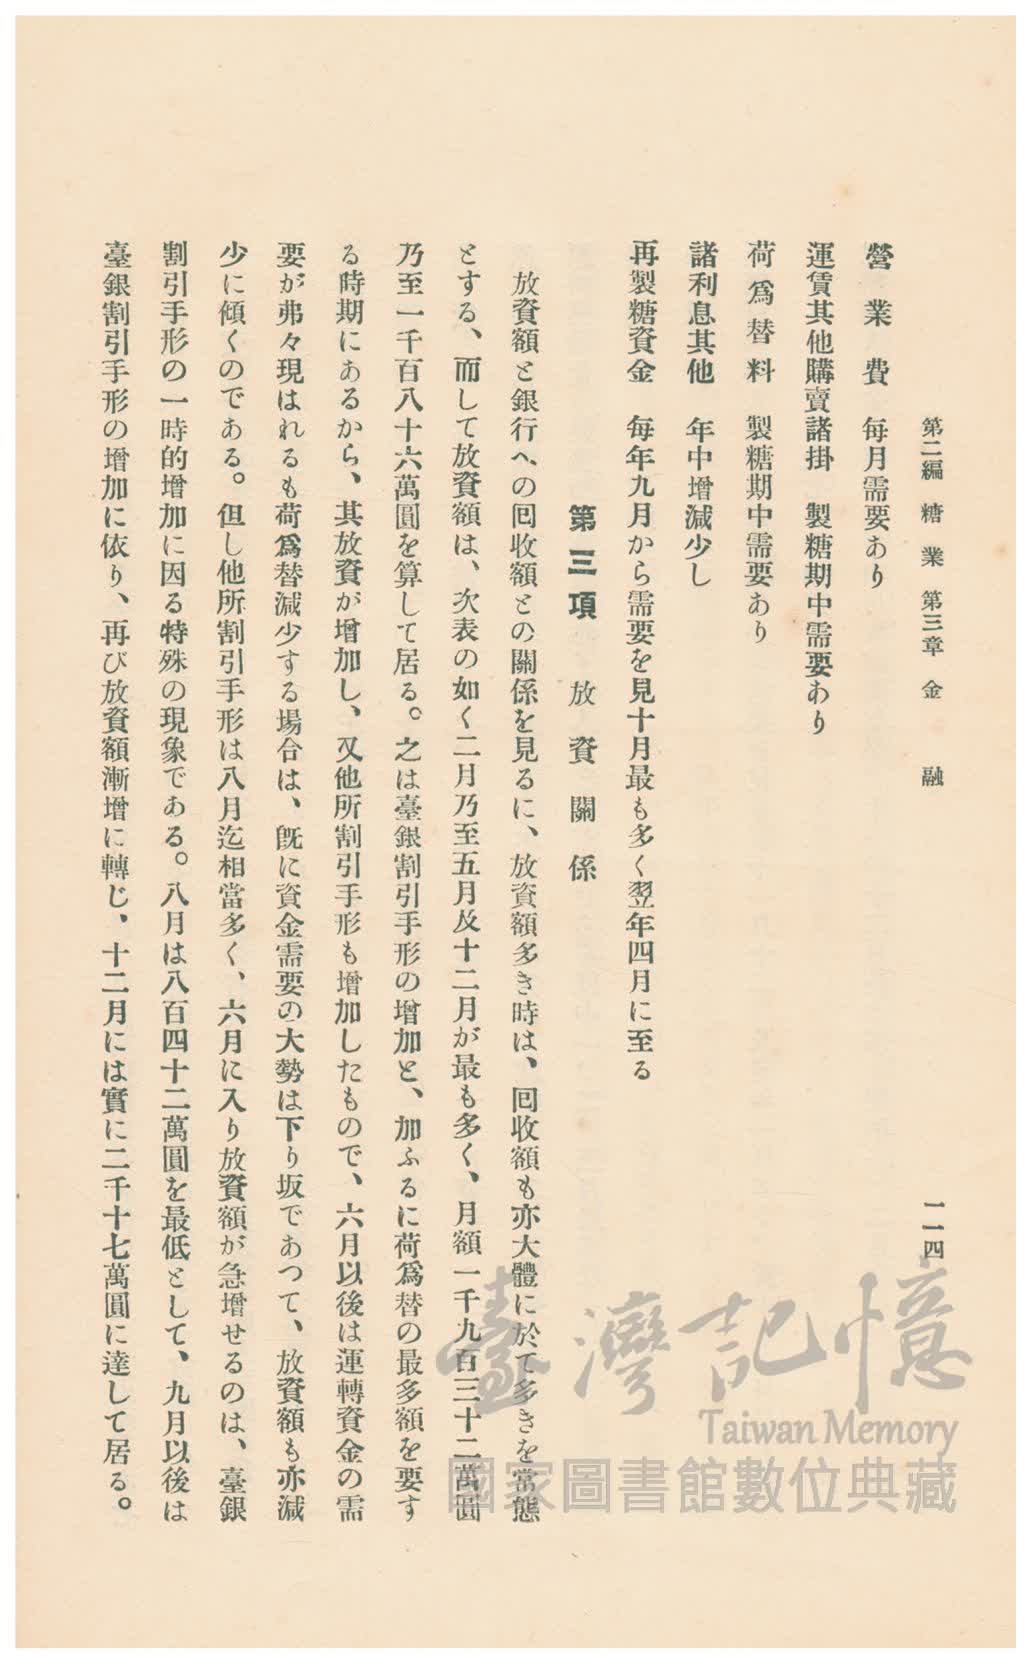 第二編　糖　業　第三章　金　　融　　　一一四
營　業　費　每月需要あり
運賃其他購賣諸掛　製糖期中需要あり
荷爲替料　製糖期中需要あり
諸利息其他　年中增減少し
再製糖資金　每年九月から需要を見十月最も多く翌年四月に至る
第三項　放資關係
放資額と銀行への囘收額との關係を見るに、放資額多き時は、囘收額も亦大體に於て多きを常態
とする、而して放資額は、次表の如く二月乃至五月及十二月が最も多く、月額一千九百三十二萬圓
乃至一千百八十六萬圓を算して居る。之は臺銀割引手形の增加と、加ふるに荷爲替の最多額を要す
る時期にあるから、其放資が增加し、又他所割引手形も增加したもので、六月以後は運轉資金の需
要が弗々現はれるも荷爲替減少する場合は、既に資金需要の大勢は下り坂であつて、放資額も亦減
少に傾くのである。但し他所割引手形は八月迄相當多く、六月に入り放資額が急增せるのは、臺銀
割引手形の一時的增加に因る特殊の現象である。八月は八百四十二萬圓を最低として、九月以後は
臺銀割引手形の增加に依り、再び放資額漸增に轉じ、十二月には實に二千十七萬圓に達して居る。
臺灣記憶
Taiwan Memory
國家圖書館數位典藏